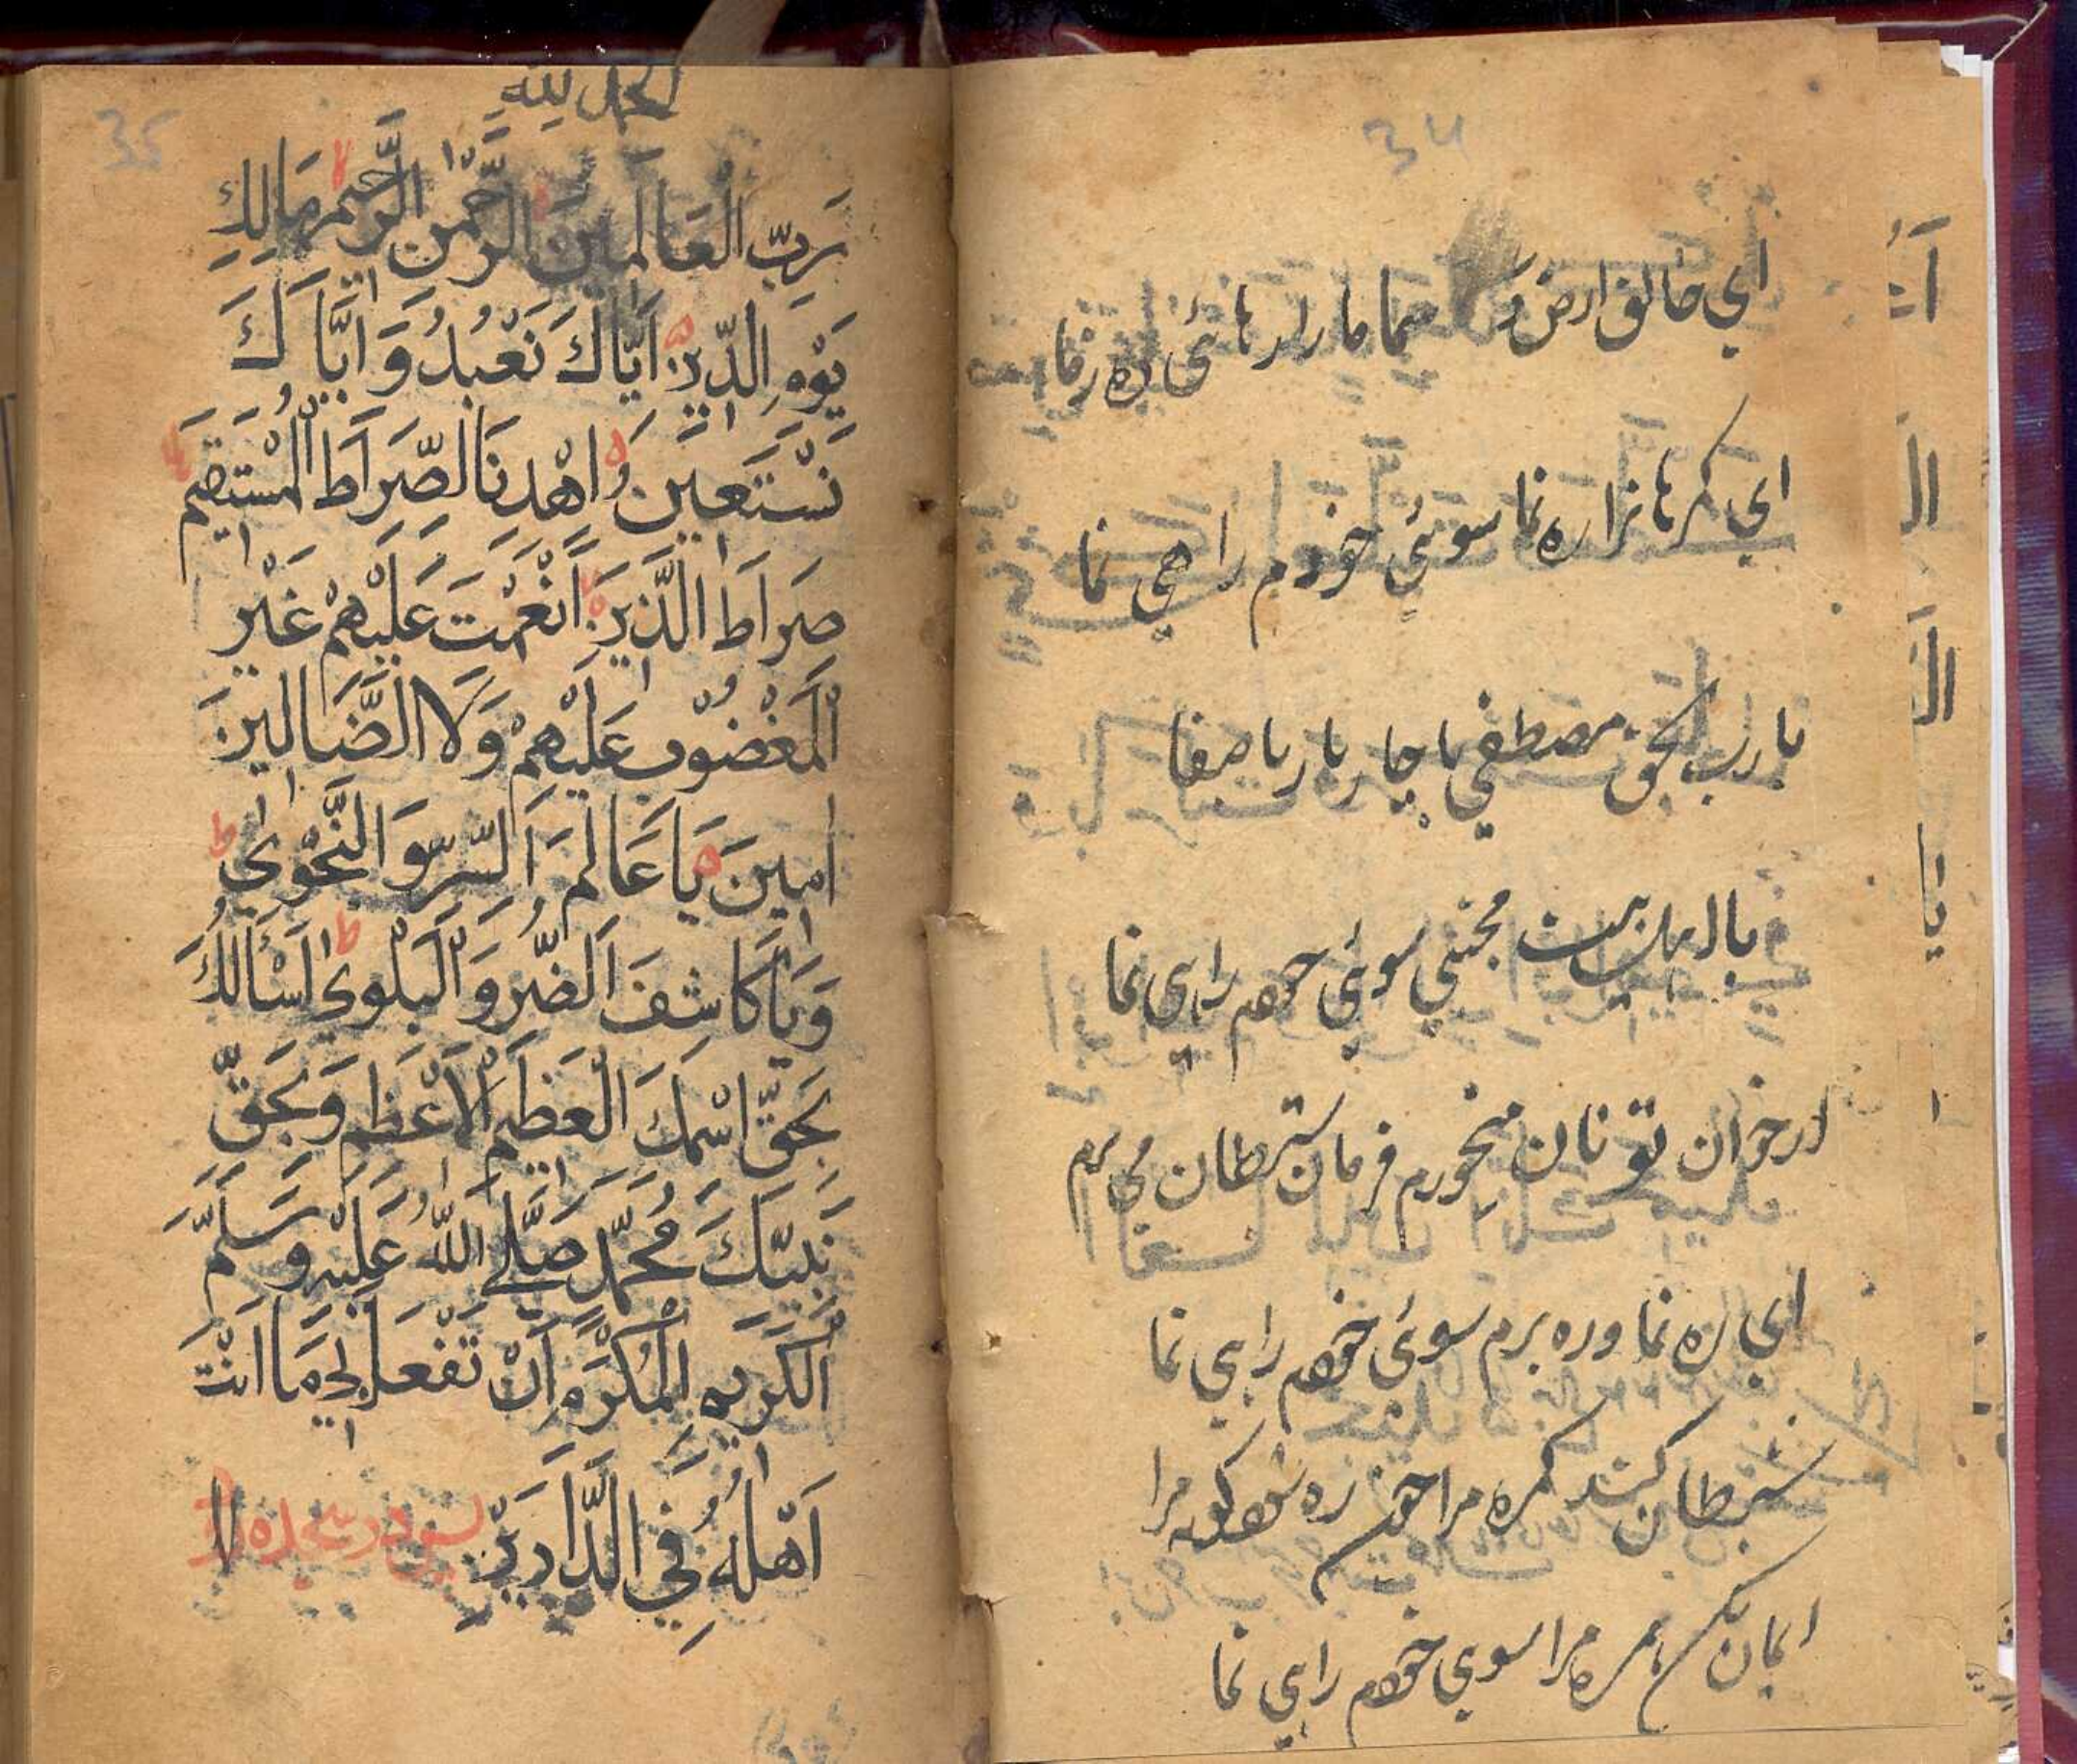 34
اي خالق ارض و سما ما را رهائي ره نما
اي گمرهانرا ره نما سوئي خودم راهي نما
يا رب بحق مصطفي با چار يار باصفا
با اهل بيت مجتبي سوئي خودم راهي نما
از خوان تو نان ميخورم فرمان شيطان مي برم
اي ره نما و ره برم سوئ خودم راهي نما
شيطان كند گمره مرا چون ره شود كوته مرا
ايمان بكن همره مرا سوي خودم راهي نما
35
الحمل لله
رَبِّ الْعَالَمِينَ الرَّحْمٰنِ الرَّحِيمِ مَالِكِ
يَوْمِ الدِّينِ اِيَّاكَ نَعْبُدُ وَاِيَّاكَ
نَسْتَعِينُ اِهْدِنَا الصِّرَاطَ الْمُسْتَقِيمَ
صِرَاطَ الَّذِينَ اَنْعَمْتَ عَلَيْهِمْ غَيْرِ
الْمَغْضُوْبِ عَلَيْهِمْ وَلَا الضَّالِينَ
اٰمِينَ يَا عَالِمَ السِّرِّ وَالنَّجْوٰى
وَيَا كَاشِفَ الضُّرِّ وَالْبَلْوٰى اَسْاَلُكَ
بِحَقِّ اسْمِكَ الْعَظِيْمِ الْاَعْظَمِ وَبِحَقِّ
نَبِيِّكَ مُحَمَّدٍ صَلَّى اللّٰهُ عَلَيْهِ وَسَلَّمَ
الْكَرِيمِ الْمُكَرَّمِ اَنْ تَفْعَلَ بِي مَا اَنْتَ
اَهْلُهُ فِي الدَّارَيْنِ پس در سجده رود لا